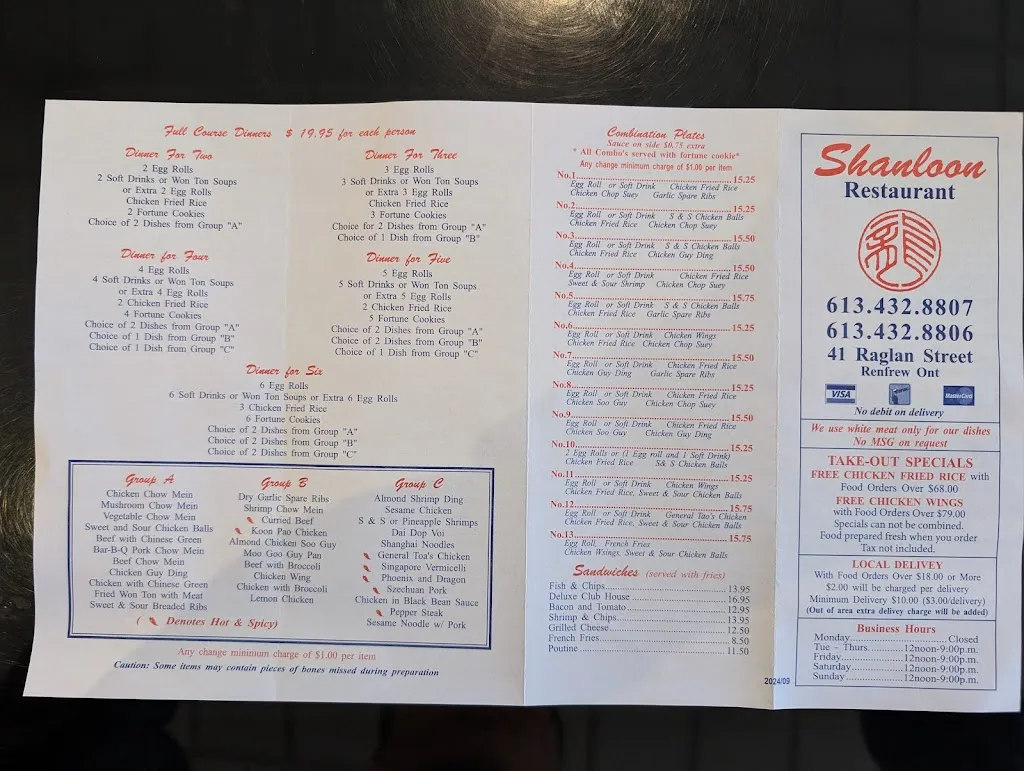 Full Course Dinners $ 19.95 for each person
Dinner For Two
2 Egg Rolls
2 Soft Drinks or Won Ton Soups
or Extra 2 Egg Rolls
Chicken Fried Rice
2 Fortune Cookies
Choice of 2 Dishes from Group "A"
Dinner For Three
3 Egg Rolls
3 Soft Drinks or Won Ton Soups
or Extra 3 Egg Rolls
Chicken Fried Rice
3 Fortune Cookies
Choice for 2 Dishes from Group "A"
Choice of 1 Dish from Group "B"
Dinner for Four
4 Egg Rolls
4 Soft Drinks or Won Ton Soups
or Extra 4 Egg Rolls
2 Chicken Fried Rice
4 Fortune Cookies
Choice of 2 Dishes from Group "A"
Choice of 1 Dish from Group "B"
Choice of 1 Dish from Group "C"
Dinner for Five
5 Egg Rolls
5 Soft Drinks or Won Ton Soups
or Extra 5 Egg Rolls
2 Chicken Fried Rice
5 Fortune Cookies
Choice of 2 Dishes from Group "A"
Choice of 2 Dishes from Group "B"
Choice of 1 Dish from Group "C"
Dinner for Six
6 Egg Rolls
6 Soft Drinks or Won Ton Soups or Extra 6 Egg Rolls
3 Chicken Fried Rice
6 Fortune Cookies
Choice of 2 Dishes from Group "A"
Choice of 2 Dishes from Group "B"
Choice of 2 Dishes from Group "C"
Group A
Chicken Chow Mein
Mushroom Chow Mein
Vegetable Chow Mein
Sweet and Sour Chicken Balls
Beef with Chinese Green
Bar-B-Q Pork Chow Mein
Beef Chow Mein
Chicken Guy Ding
Chicken with Chinese Green
Fried Won Ton with Meat
Sweet & Sour Breaded Ribs
( Denotes Hot & Spicy)
Group B
Dry Garlic Spare Ribs
Shrimp Chow Mein
Curried Beef
Koon Pao Chicken
Almond Chicken Soo Guy
Moo Goo Guy Pan
Beef with Broccoli
Chicken Wing
Chicken with Broccoli
Lemon Chicken
Group C
Almond Shrimp Ding
Sesame Chicken
S & S or Pineapple Shrimps
Dai Dop Voi
Shanghai Noodles
General Toa's Chicken
Singapore Vermicelli
Phoenix and Dragon
Szechuan Pork
Chicken in Black Bean Sauce
Pepper Steak
Sesame Noodle w/ Pork
Any change minimum charge of $1.00 per item
Caution: Some items may contain pieces of bones missed during preparation
Combination Plates
Sauce on side $0.75 extra
* All Combo's served with fortune cookie*
Any change minimum charge of $1.00 per item
No.1 15.25
Egg Roll or Soft Drink Chicken Fried Rice
Chicken Chop Suey Garlic Spare Ribs
No.2 15.25
Egg Roll or Soft Drink S & S Chicken Balls
Chicken Fried Rice Chicken Chop Suey
No.3 15.50
Egg Roll or Soft Drink S & S Chicken Balls
Chicken Fried Rice Chicken Guy Ding
No.4 15.50
Egg Roll or Soft Drink Chicken Fried Rice
Sweet & Sour Shrimp Chicken Chop Suey
No.5 15.75
Egg Roll or Soft Drink S & S Chicken Balls
Chicken Fried Rice Garlic Spare Ribs
No.6 15.25
Egg Roll or Soft Drink Chicken Wings
Chicken Fried Rice Chicken Chop Suey
No.7 15.50
Egg Roll or Soft Drink Chicken Fried Rice
Chicken Guy Ding Garlic Spare Ribs
No.8 15.25
Egg Roll or Soft Drink Chicken Fried Rice
Chicken Soo Guy Chicken Chop Suey
No.9 15.50
Egg Roll or Soft Drink Chicken Fried Rice
Chicken Soo Guy Chicken Guy Ding
No.10 15.25
2 Egg Rolls or (1 Egg roll and 1 Soft Drink)
Chicken Fried Rice S& S Chicken Balls
No.11 15.25
Egg Roll or Soft Drink Chicken Wings
Chicken Fried Rice, Sweet & Sour Chicken Balls
No.12 15.75
Egg Roll or Soft Drink General Tao's Chicken
Chicken Fried Rice, Sweet & Sour Chicken Balls
No.13 15.75
Egg Roll, French Fries
Chicken Wings, Sweet & Sour Chicken Balls
Sandwiches (served with fries)
Fish & Chips 13.95
Deluxe Club House 16.95
Bacon and Tomato 12.95
Shrimp & Chips 13.95
Grilled Cheese 12.50
French Fries 8.50
Poutine 11.50
2024/09
Shanloon
Restaurant
613.432.8807
613.432.8806
41 Raglan Street
Renfrew Ont
VISA
MasterCard
No debit on delivery
We use white meat only for our dishes
No MSG on request
TAKE-OUT SPECIALS
FREE CHICKEN FRIED RICE with
Food Orders Over $68.00
FREE CHICKEN WINGS
with Food Orders Over $79.00
Specials can not be combined.
Food prepared fresh when you order
Tax not included.
LOCAL DELIVEY
With Food Orders Over $18.00 or More
$2.00 will be charged per delivery
Minimum Delivery $10.00 ($3.00/delivery)
(Out of area extra delivey charge will be added)
Business Hours
Monday Closed
Tue - Thurs. 12noon-9:00p.m.
Friday 12noon-9:00p.m.
Saturday 12noon-9:00p.m.
Sunday 12noon-9:00p.m.